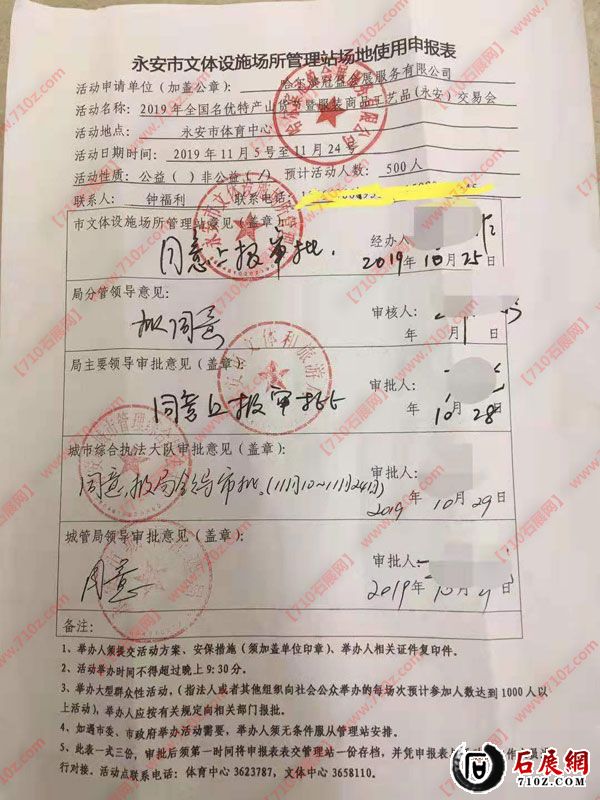 永安市文体设施场所管理站场地使用申报表
活动申请单位(加盖公章): 哈尔滨冠盛会展服务有限公司
活动名称: 2019年全国名优特产山货节暨服装商品工艺品(永安)交易会
活动地点: 永安市体育中心
活动日期时间: 2019年11月5号至11月24号
活动性质: 公益( )非公益(√) 预计活动人数: 500人
联系人: 钟福利 联系电话:
市文体设施场所管理站意见(盖章):
经办人
同意上报审批.
2019年10月25日
局分管领导意见:
审核人:
拟同意
年 月 日
局主要领导审批意见(盖章):
审批人:
同意上报审批
年10月28日
城市综合执法大队审批意见(盖章):
审批人:
同意,报局领导审批.(11月10~11月24日)
2019年10月29日
城管局领导审批意见(盖章):
审批人:
同意
2019年10月 日
备注:
1、举办人须提交活动方案、安保措施(须加盖单位印章)、举办人相关证件复印件。
2、活动举办时间不得超过晚上9:30分。
3、举办大型群众性活动,(指法人或者其他组织向社会公众举办的每场次预计参加人数达到1000人以
上活动),举办人应按有关规定向相关部门报批。
4、如遇市委、市政府举办活动需要,举办人须无条件服从管理站安排。
5、此表一式三份,审批后须第一时间将申报表交管理站一份存档,并凭申报表与 作人员进
行对接。活动点联系电话: 体育中心 3623787, 文体中心 3658110.
石展網
www.710z.com
【710石展网】
www.710z.com